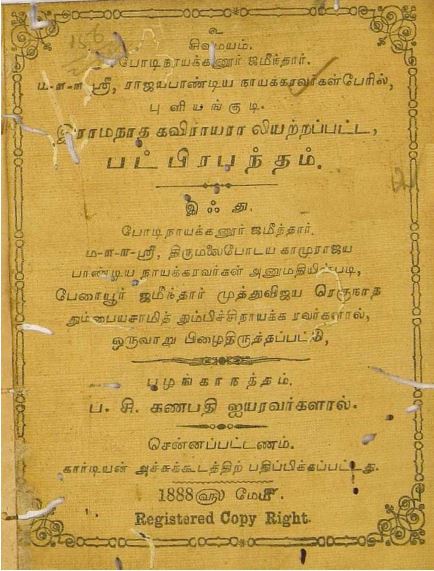 உ
சிவமயம்.
போடிநாயக்கனூர் ஜமீந்தார்.
ம-ள-ள-ஸ்ரீ, ராஜயபாண்டிய நாயக்கரவர்கள்பேரில்,
புளியங்குடி.
இராமநாத கவிராயரா லியற்றப்பட்ட,
பட்பிரபந்தம்.
இஃது.
போடிநாயக்கனூர் ஜமீந்தார்.
ம-ள-ள-ஸ்ரீ, திருமலைபோடய காமுராஜய
பாண்டிய நாயக்கரவர்கள் அனுமதியின்படி,
பேரையூர் ஜமீந்தார் முத்துவிஜய ரெகுநாத
தும்பையசாமித் தும்பிச்சிநாயக்க ரவர்களால்,
ஒருவாறு பிழைதிருத்தப்பட்டு,
புழங்காநத்தம்.
ப. சி. கணபதி ஐயரவர்களால்.
சென்னப்பட்டணம்.
கார்டியன் அச்சுக்கூடத்திற் பதிப்பிக்கப்பட்டது.
1888௵ மே௴.
Registered Copy Right.